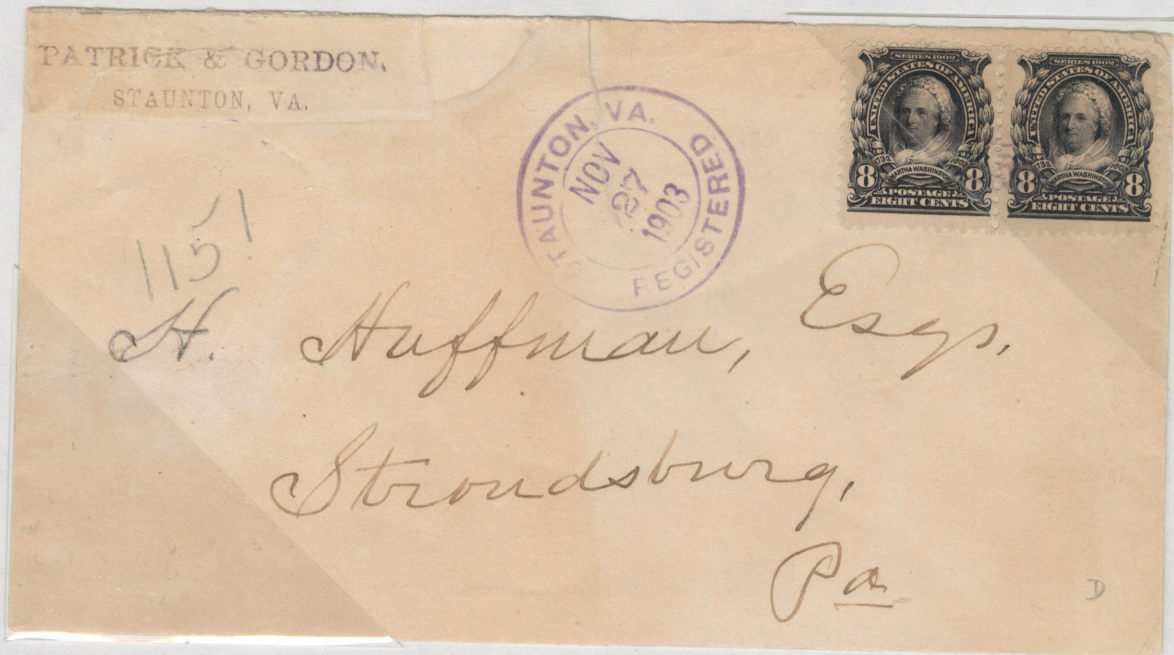 PATRICK & GORDON.
STAUNTON, VA.
STAUNTON, VA.
REGISTERED
NOV
27
1903
SERIES 1902
UNITED STATES OF AMERICA
1732 1802
MARTHA WASHINGTON
8 8
POSTAGE
EIGHT CENTS
SERIES 1902
UNITED STATES OF AMERICA
1732 1802
MARTHA WASHINGTON
8 8
POSTAGE
EIGHT CENTS
1151
H. Huffman, Esq.
Stroudsburg,
Pa
D